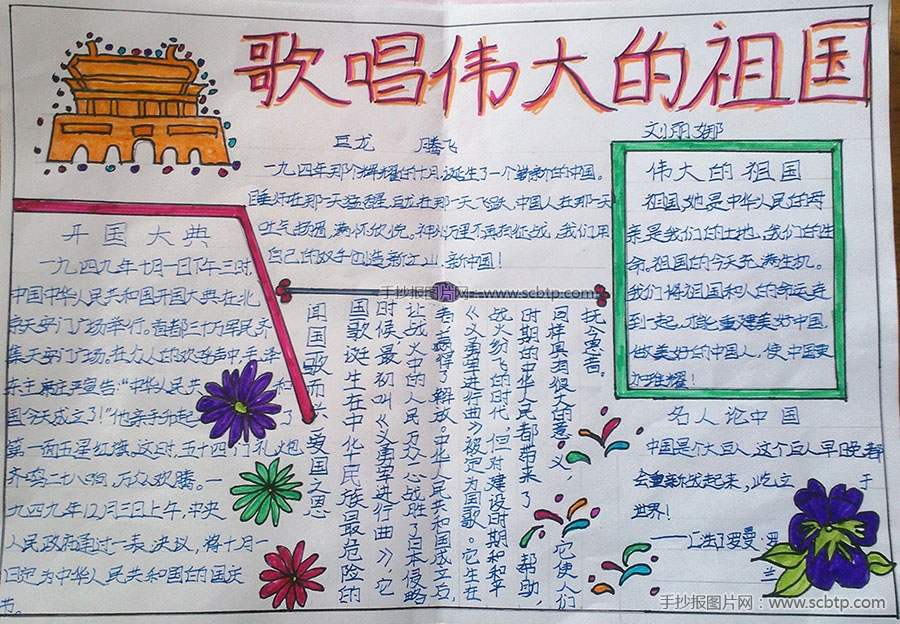 歌唱伟大的祖国
刘丽娜
巨龙 腾飞
一九四年那个辉耀的十月,诞生了一个崭新的中国。
睡狮在那一天猛醒,巨龙在那一天飞跃,中国人在那一天
吐气扬眉,满怀欣悦。神州万里不再征战,我们用
自己的双手创造新江山、新中国!
开国大典
一九四九年十月一日下午三时,
中国中华人民共和国开国大典在北
京天安门广场举行。首都三十万军民齐
集天安门广场。在万人的欢呼声中,毛泽
东主席庄严宣告:“中华人民共和
国今天成立了!”他亲手升起了
第一面五星红旗,这时,五十四门礼炮
齐鸣二十八响,万众欢腾。一
九四九年12月三日上午,中央
人民政府通过一表决议,将十月一
日定为中华人民共和国的国庆
节。
手抄报图片网:www.scbtp.com
抚今思昔。
同样具有很大的意义,它使人们
时期的中华人民都带来了帮助,
战火纷飞的时代,但对建设时期和和平
《义勇军进行曲》被定为国歌。它生在
者,赢得了解放。中华人民共和国成立后,
让战火中的人民万众一心战胜了日本侵略
时候最初叫《义勇军进行曲》它
国歌诞生在中华民族最危险的
闻国歌而兴爱国之思
伟大的祖国
祖国,她是中华人民的母
亲是我们的土地,我们的生
命,祖国的今天充满生机。
我们将祖国和人的命运连
到一起,才能重建美好中国,
做美好的中国人,使中国更
加辉耀!
名人论中国
中国是个大巨人,这个巨人早晚都
会重新战起来,屹立于
世界!
——汇浩了罗曼·罗
兰
手抄报图片网:www.scbtp.com